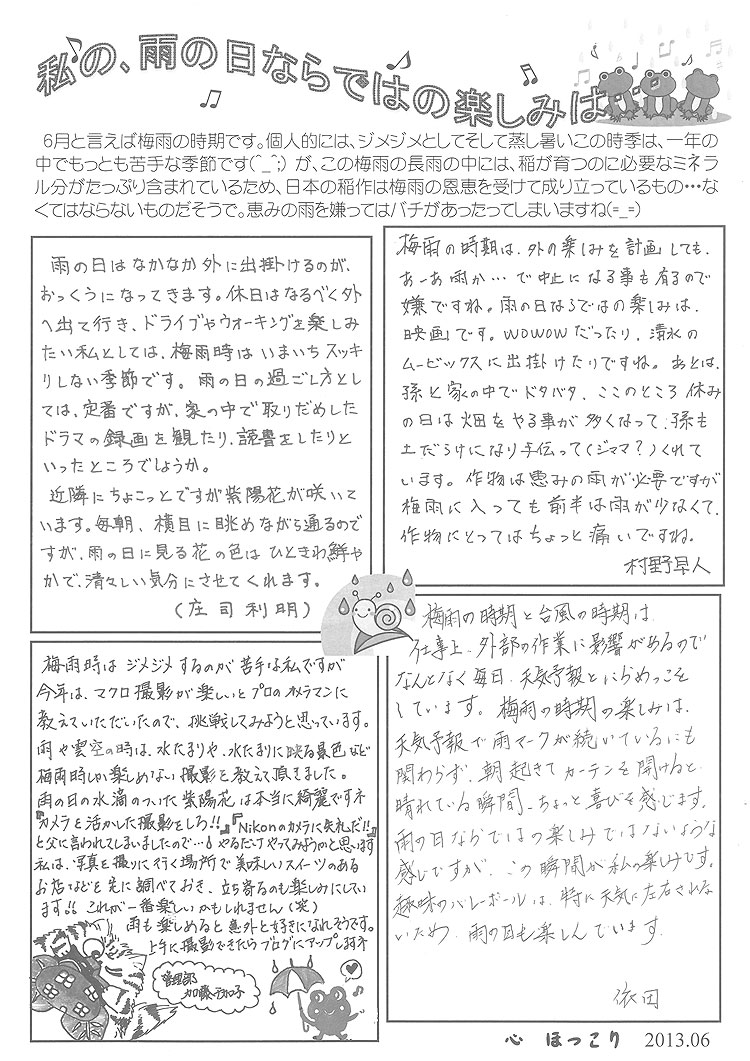 私の、雨の日ならではの楽しみは
6月と言えば梅雨の時期です。個人的には、ジメジメとしてそして蒸し暑いこの時季は、一年の
中でもっとも苦手な季節です(^_^;) が、この梅雨の長雨の中には、稲が育つのに必要なミネラ
ル分がたっぷり含まれているため、日本の稲作は梅雨の恩恵を受けて成り立っているもの…な
くてはならないものだそうで。恵みの雨を嫌ってはバチがあったってしまいますね(=_=)
雨の日はなかなか外に出掛けるのが、
おっくうになってきます。休日はなるべく外
へ出て行き、ドライブやウオーキングを楽しみ
たい私としては、梅雨時はいまいちスッキ
リしない季節です。雨の日の過ごし方とし
ては、定番ですが、家の中で取りだめした
ドラマの録画を観たり、読書をしたりと
いったところでしょうか。
近隣にちょこっとですが紫陽花が咲いて
います。毎朝、横目に眺めながら通るので
すが、雨の日に見る花の色はひときわ鮮や
かで、清々しい気分にさせてくれます。
(庄司利明)
梅雨の時期は、外の楽しみを計画しても、
あーあ雨か…で中止になる事も有るので
嫌ですね。雨の日ならではの楽しみは、
映画です。WOWOWだったり、清水の
ムービックスに出掛けたりですね。あとは、
孫と家の中でドタバタ、ここのところ休み
の日は畑をやる事が多くなって、孫も
土だらけになり手伝って(ジママ?)くれて
います。作物は恵みの雨が必要ですが
梅雨に入っても前半は雨が少なくて、
作物にとってはちょっと痛いですね。
村野早人
梅雨時はジメジメするのが苦手な私ですが
今年は、マクロ撮影が楽しいとプロのカメラマンに
教えていただいたので、挑戦してみようと思っています。
雨や曇空の時は、水たまりや、水たまりに映る景色など
梅雨時しか楽しめない撮影を教えて頂きました。
雨の日の水滴のついた紫陽花は本当に綺麗ですネ
『カメラを活かした撮影をしろ!!』『Nikonのカメラに失礼だ!!』
と父に言われてしまいましたので…やるだけやってみようかと思います
私は、写真を撮りに行く場所で美味しいスイーツのある
お店などを先に調べておき、立ち寄るのも楽しみにしてい
ます!! これが一番楽しいかもしれません(笑)
雨も楽しめると意外と好きになれそうです。
上手に撮影できたらブログにアップします
管理部
加藤
梅雨の時期と台風の時期は、
仕事上、外部の作業に影響があるので
なんとなく毎日、天気予報とにらめっこ
しています。梅雨の時期の楽しみは、
天気予報で雨マークが続いているにも
関わらず、朝起きてカーテンを開けると
晴れている瞬間、ちょっと喜びを感じます。
雨の日ならではの楽しみではないような
感じですが、この瞬間が私の楽しみです。
趣味のバレーボールは、特に天気に左右されな
いため、雨の日も楽しんでいます。
依田
心 ほっこり 2013.06